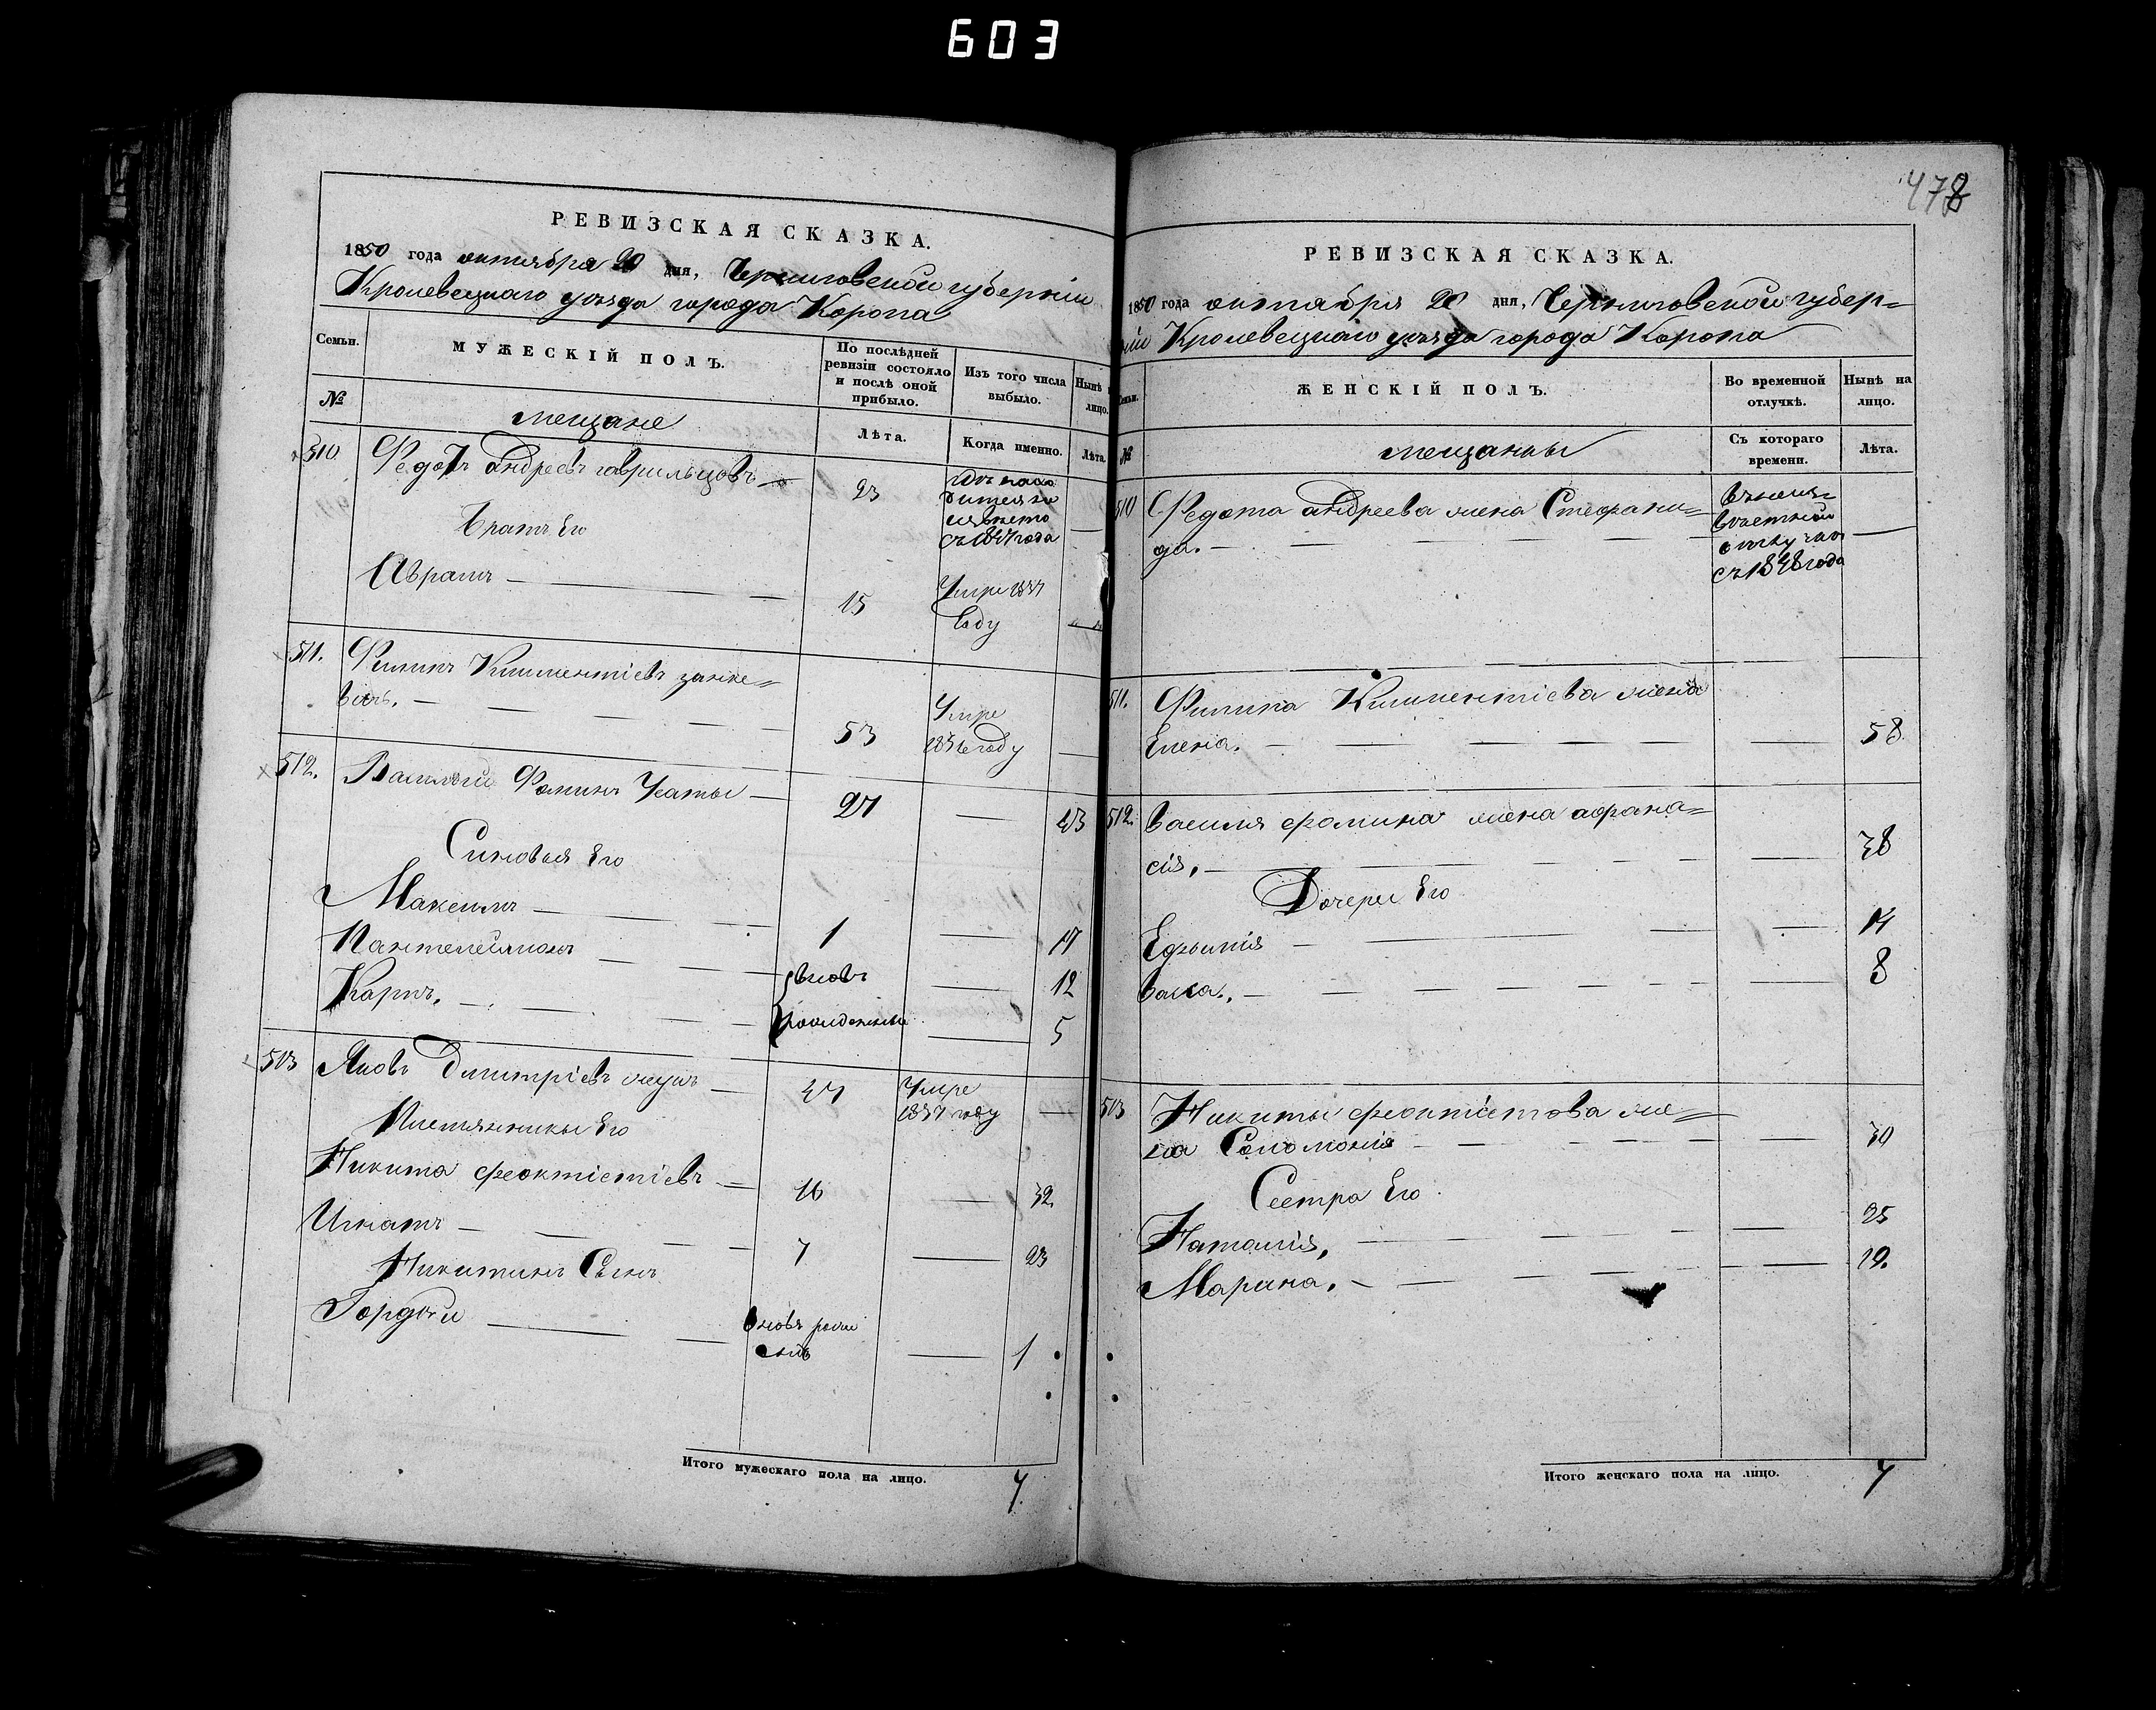 603
478
РЕВИЗСКАЯ СКАЗКА.
1850 года октября 20 дня, Черниговской губернии
Кролевецкаго уезда города Коропа
Семьи.
МУЖЕСКІЙ ПОЛЪ.
По послѣдней ревизіи состояло и послѣ оной прибыло.
Изъ того числа выбыло.
Нынѣ лицо.
№
мещане
Лѣта.
Когда именно.
Лѣта.
510 Федотъ андреевъ гаврильцовъ 23
съ 1847 года
Братъ Его
Аврамъ 15 Умре 1837 году
511. Филипъ Климентіевъ
53 Умре
году
512. Василий Фоминъ Усаты 27 43
Синовья Его
Максимъ 1 17
Пантелеймонъ вновь 12
Карпъ. рожденные 5
513 Яковъ Дмитріевъ 47 Умре
1837 году
Племянники Его
Никита феоктистіевъ 16 32
Игнатъ 7 23
Никитинъ Сынъ
Гордѣи вновь рож
1
Итого мужескаго пола на лицо. 7
РЕВИЗСКАЯ СКАЗКА.
1850 года октября 20 дня, Черниговской губер=
ніи Кролевецкаго уезда города Коропа
Семьи.
ЖЕНСКІЙ ПОЛЪ.
Во временной отлучкѣ.
Нынѣ на лицо.
№
мещанки
Съ котораго времени.
Лѣта.
510 Федота андреева жена Стефани=
да.
съ 1848 года
511. Филипа Климентіева жена
Елена. 58
512. василия фомина жена афана=
сія. 38
Дочери Его
Ефимія 14
васса. 8
513 Никиты феоктистова же=
на Соломонія 30
Сестра Его
Наталия, 25
Марина. 19.
Итого женскаго пола на лицо. 7